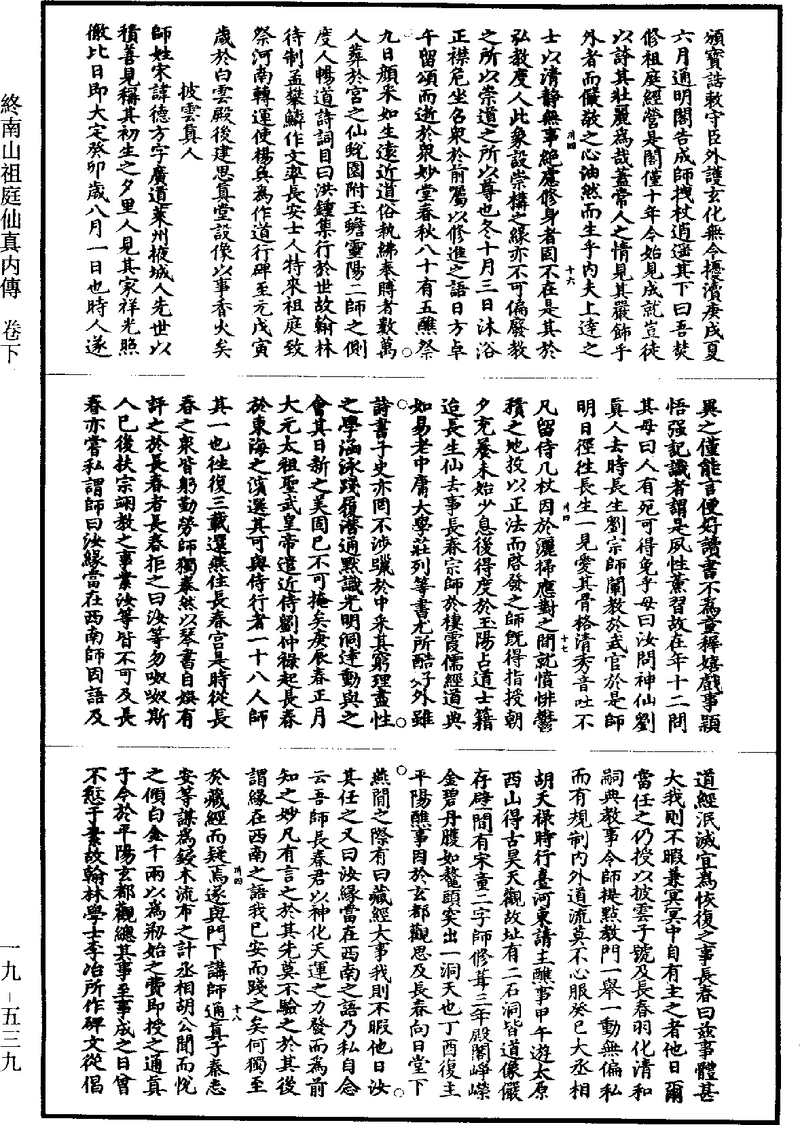 頒寶誥敕守臣外護玄化無令擾瀆庚戌夏
六月通明閣告成師拽杖逍遥其下曰吾焚
修祖庭經營是閣僅十年今始見成就豈徒
以誇其壯麗爲哉蓋常人之情見其嚴飾乎
外者而儼敬之心油然而生乎内夫上達之
士以清静無事絕慮修身者固不在是其於
弘教度人此象設崇構之緣亦不可偏廢教
之所以崇道之所以尊也冬十月三日沐浴
正襟危坐名衆於前屬以修進之語日方卓
午留頌而逝於衆妙堂春秋八十有五醮祭
九日顔采如生遠近道俗執紼奉賵者數萬
人葬於宫之仙蛻園附玉蟾靈陽二師之側
度人暢道詩詞目曰洪鍾集行於世故翰林
待制孟攀鱗作文率長安士人特來祖庭致
祭河南轉運使楊奂爲作道行碑至元戊寅
歲於白雲殿後建思真堂設像以事香火矣
披雲真人
師姓宋諱德方字廣道萊州掖城人先世以
積善見稱其初生之夕里人見其家祥光照
徹比日即大定癸卯歲八月一日也時人遂
異之僅能言便好讀書不爲童穉嬉戲事穎
悟强記識者謂是夙性薰習故在年十二問
其母曰人有死可得免乎母曰汝問神仙劉
真人去時長生劉宗師闡教於武官於是師
明日徑往長生一見愛其骨格清秀音吐不
凡留侍几杖因於灑掃應對之間就憤悱鬱
積之地投以正法而啓發之師既得指授朝
夕充養未始少息後得度於玉陽占道士籍
迨長生仙去事長春宗師於棲霞儒經道典
如易老中庸大學莊列等書尤所酷好外雖
詩書子史亦罔不涉獵於中采其窮理盡性
之學涵泳踐履潛通默識光明洞達動與之
會其日新之美固已不可掩矣庚辰春正月
大元太祖聖武皇帝遣近侍劉仲禄起長春
於東海之濱選其可與侍行者一十八人師
其一也往復三載還燕住長春宫是時從長
春之衆皆躬勤勞師獨泰然以琴書自娱有
評之於長春者長春拒之曰汝等勿呶呶斯
人已後扶宗翊教之事業汝等皆不可及長
春亦嘗私謂師曰汝緣當在西南師因語及
道經泯滅宜爲恢復之事長春曰兹事體甚
大我則不暇兼冥冥中自有主之者他日爾
當任之仍授以披雲子號及長春羽化清和
嗣典教事令師提點教門一舉一動無偏私
而有規制内外道流莫不心服癸巳大丞相
胡天禄時行臺河東請主醮事甲午遊太原
西山得古昊天觀故址有二石洞皆道像儼
存壁間有宋童二字師修葺三年殿閣崢嶸
金碧丹雘如鼇頭突出一洞天也丁酉復主
平陽醮事因於玄都觀思及長春向日堂下
燕閒之際有曰藏經大事我則不暇他日汝
其任之又曰汝緣當在西南之語乃私自念
云吾師長春君以神化天運之力發而爲前
知之妙凡有言之於其先莫不驗之於其後
謂緣在西南之語我已安而踐之矣何獨至
於藏經而疑焉遂與門下講師通真子秦志
安等謀爲鋟木流布之計丞相胡公聞而悦
之傾白金千兩以爲刱始之費即授之通真
子令於平陽玄都觀總其事至事成之日曾
不愆于素故翰林學士李冶所作碑文從倡
終南山祖庭仙真内傳　卷下
一九－五三九
卅四
十六
卅四
十七
卅四
十八